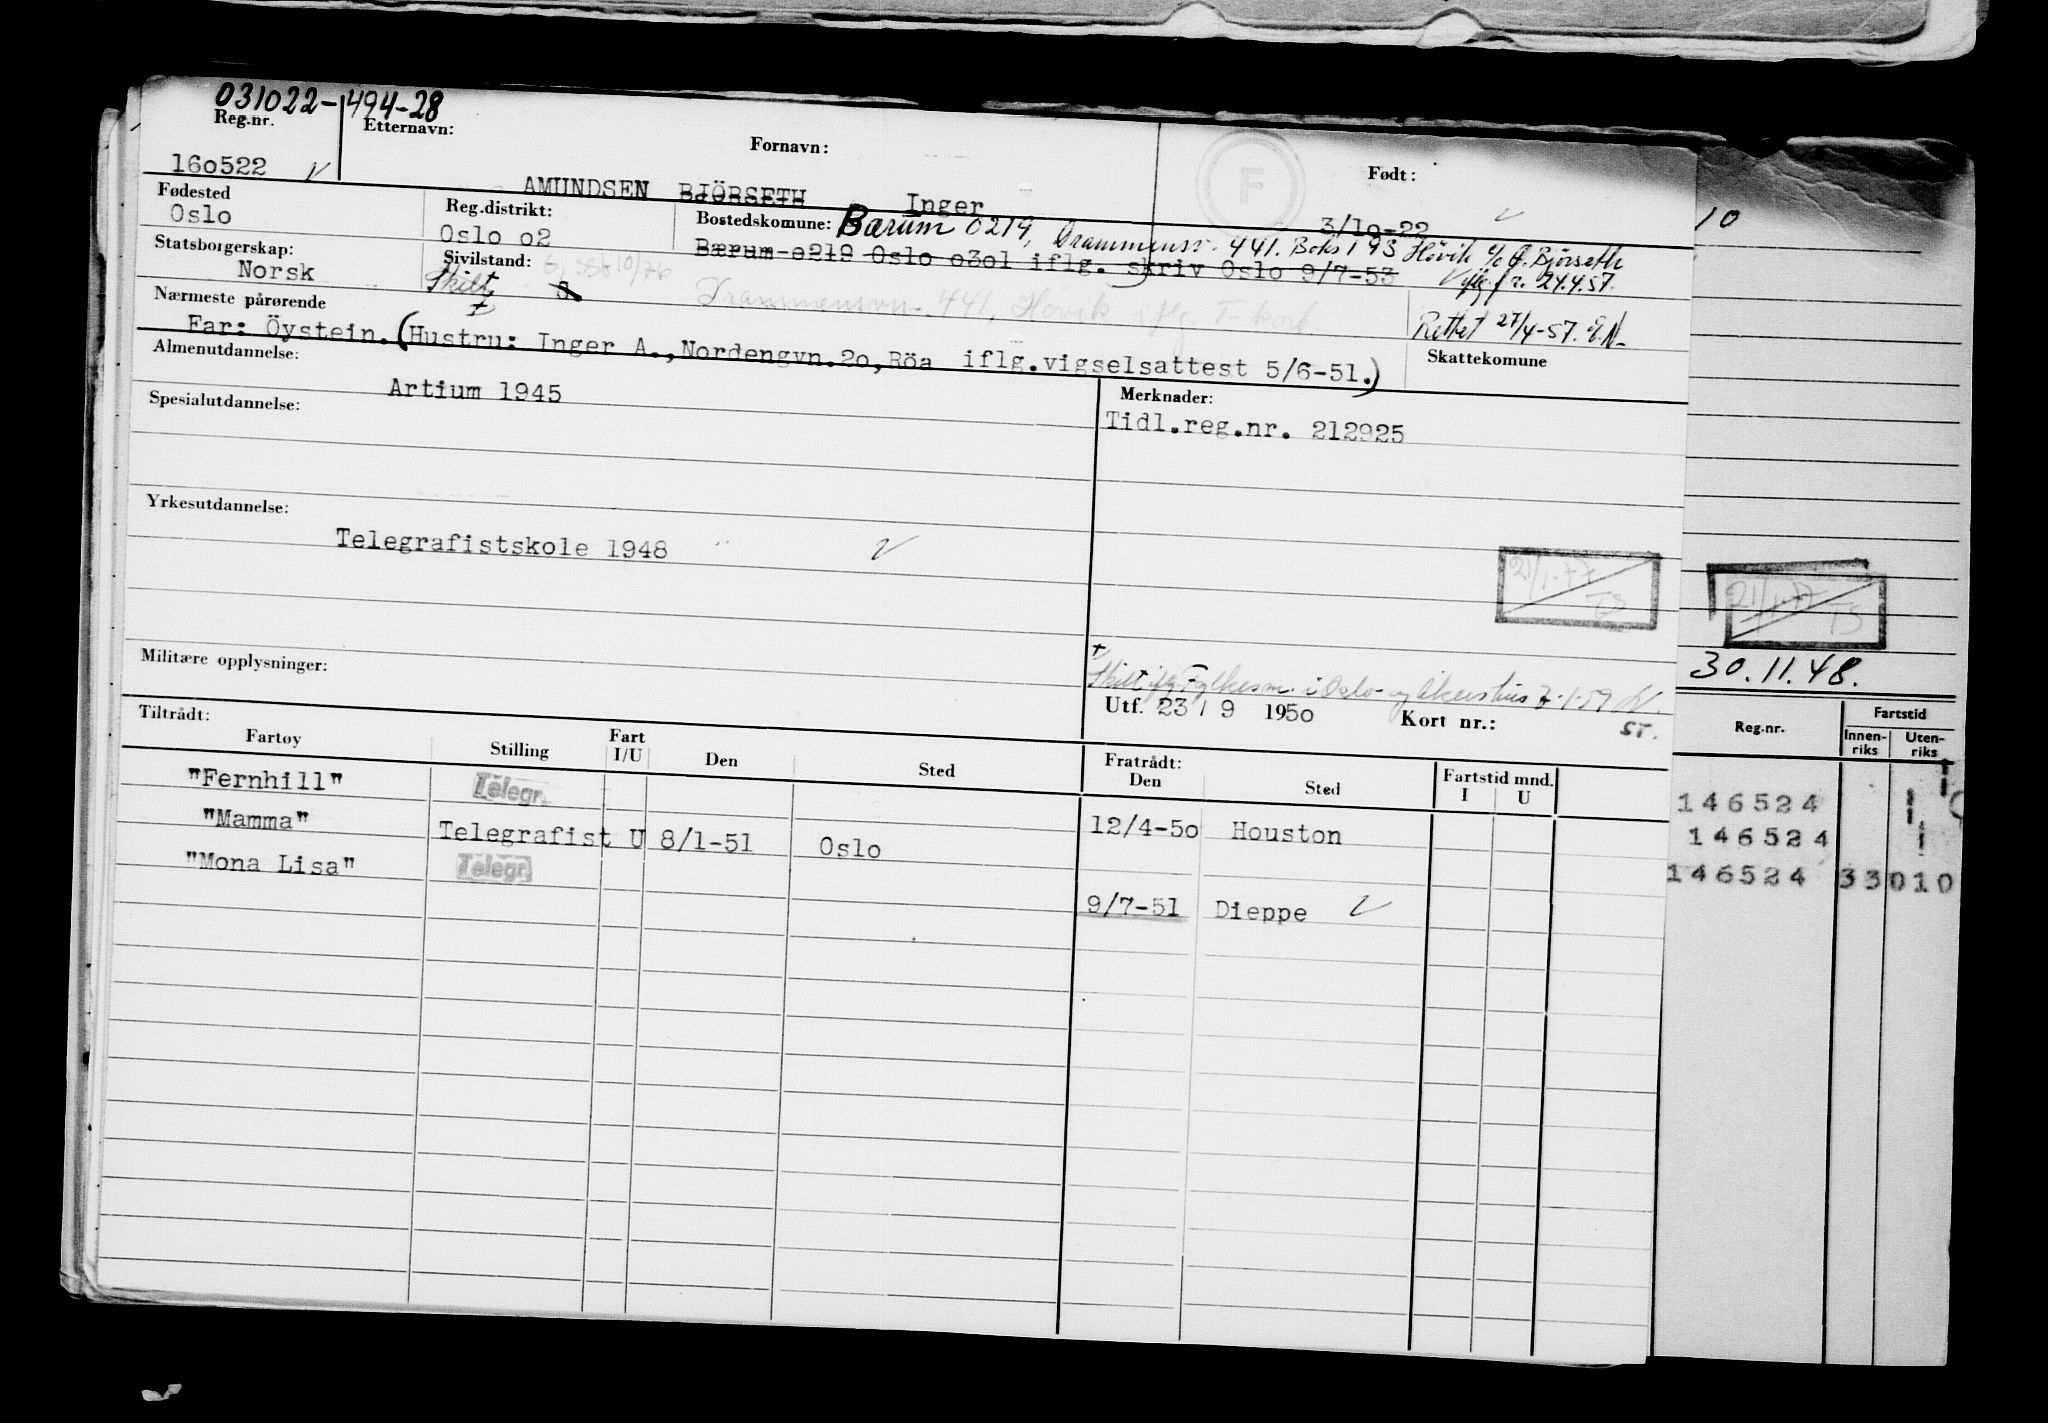 031022-494-28
Reg.nr. Etternavn: Fornavn: Født:
160522 AMUNDSEN BJÖRSETH Inger 3/10-22
F
Fødested Reg.distrikt: Bostedskomune: Bærum 0219, Drammensv. 441. Boks 193 Hövik c/o Ø. Björseth
Oslo Oslo o2 Bærum o219 Oslo o3o1 iflg. skriv Oslo 9/7-53 iflg. fr. 24.4.57.
Statsborgerskap: Sivilstand:
Norsk Skilt S
Drammensvn. 441, Hövik iflg. T-kort
Nærmeste pårørende Rettet 27/4-57.
Far: Öystein. (Hustru: Inger A.,Nordengvn.2o,Röa iflg.vigselsattest 5/6-51.) Skattekomune
Almenutdannelse: Artium 1945 Merknader:
Spesialutdannelse: Tidl.reg.nr. 212925
Yrkesutdannelse:
Telegrafistskole 1948
21/1-77 TS
21/1-77 TS
Militære opplysninger:
Skilt iflg. Fylkesm. i Oslo og Akershus
30.11.48.
Utf. 23/9 1950 Kort nr.: ST.
Tiltrådt: Fratrådt:
Fartøy Stilling Fart I/U Den Sted Den Sted Fartstid mnd. I U
Reg.nr. Fartstid Innenriks Utenriks
"Fernhill" Telegr. 12/4-5o Houston
"Mamma" Telegrafist U 8/1-51 Oslo
"Mona Lisa" Telegr. 9/7-51 Dieppe
10
146524
146524
146524 33010